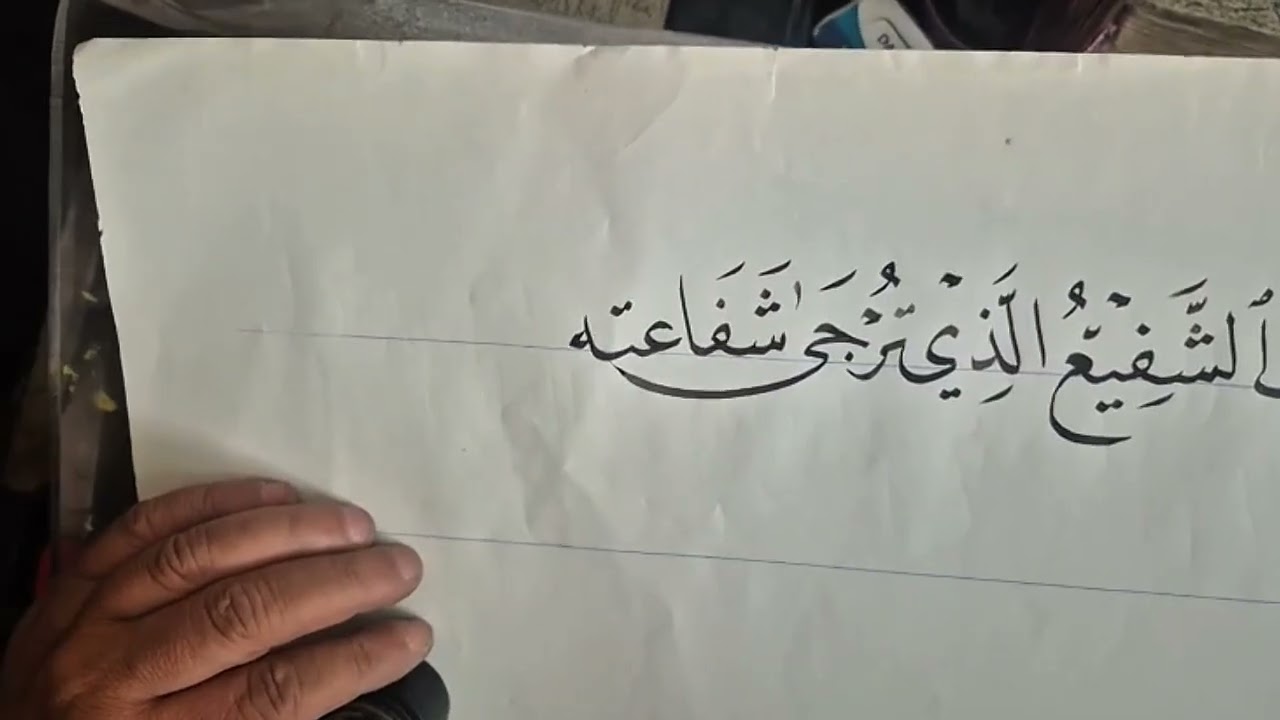 ٱلشَّفِيْعُ الَّذِيْ تُرْجَىٰ شَفَاعَته